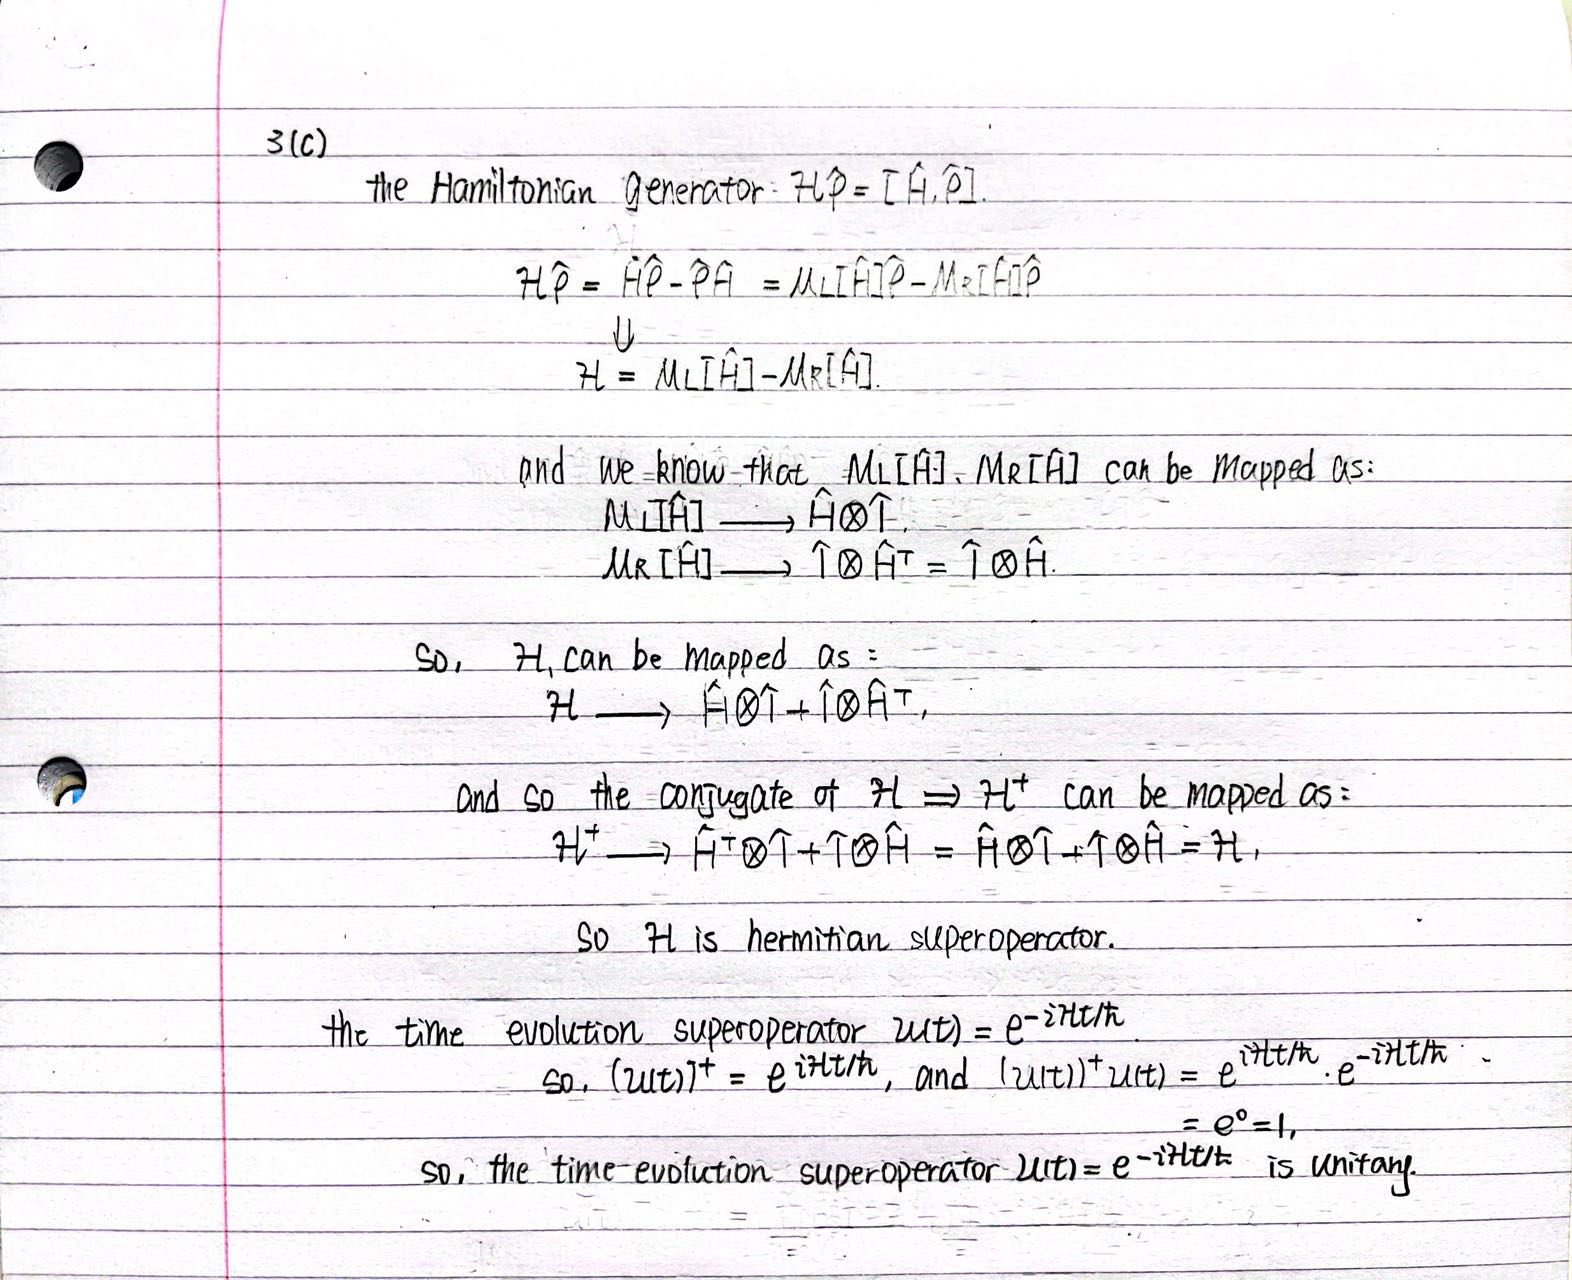 3(C)
the Hamiltonian generator: ℋρ̂ = [Ĥ,ρ̂].
ℋρ̂ = Ĥρ̂ - ρ̂Ĥ = M_L[Ĥ]ρ̂ - M_R[Ĥ]ρ̂
⇓
ℋ = M_L[Ĥ] - M_R[Ĥ].
and we know that M_L[Ĥ], M_R[Ĥ] can be mapped as:
M_L[Ĥ] ⟶ Ĥ⊗Î,
M_R[Ĥ] ⟶ Î⊗Ĥᵀ = Î⊗Ĥ.
So, ℋ, can be mapped as:
ℋ ⟶ Ĥ⊗Î + Î⊗Ĥᵀ,
and so the conjugate of ℋ ⇒ ℋ⁺ can be mapped as:
ℋ⁺ ⟶ Ĥᵀ⊗Î + Î⊗Ĥ = Ĥ⊗Î + Î⊗Ĥ = ℋ,
So ℋ is hermitian superoperator.
the time evolution superoperator U(t) = e^{-iℋt/ħ}.
so, (U(t))⁺ = e^{iℋt/ħ}, and (U(t))⁺U(t) = e^{iℋt/ħ}·e^{-iℋt/ħ}
= e⁰ = 1,
so, the time evolution superoperator U(t) = e^{-iℋt/ħ} is unitary.